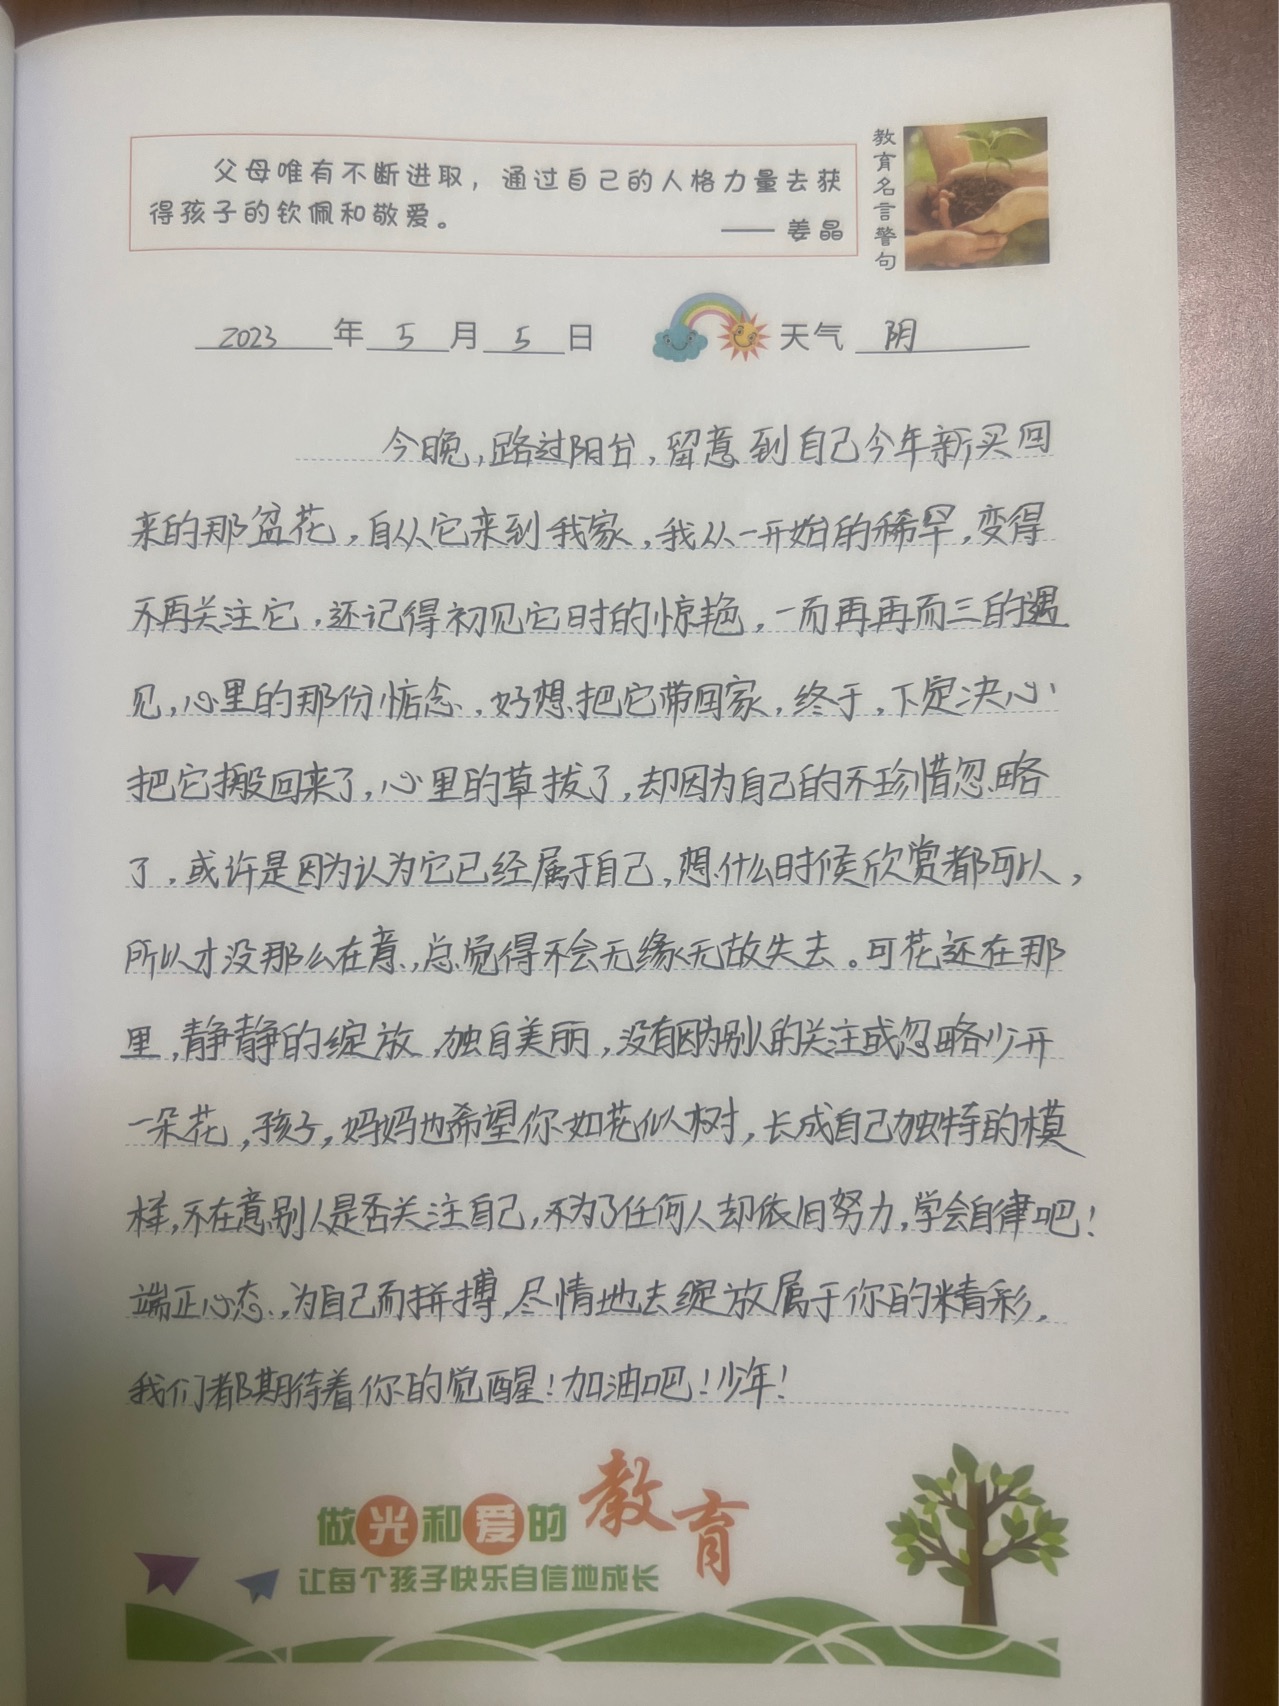 父母唯有不断进取，通过自己的人格力量去获
得孩子的钦佩和敬爱。
—— 姜晶
教育名言警句
2023年5月5日 天气 阴
今晚，路过阳台，留意到自己今年新买回
来的那盆花，自从它来到我家，我从一开始的稀罕，变得
不再关注它，还记得初见它时的惊艳，一而再再而三的遇
见，心里的那份惦念，好想把它带回家，终于，下定决心
把它搬回来了，心里的草拔了，却因为自己的不珍惜忽略
了，或许是因为认为它已经属于自己，想什么时候欣赏都可以，
所以才没那么在意，总觉得不会无缘无故失去。可花还在那
里，静静的绽放，独自美丽，没有因为别人的关注或忽略少开
一朵花，孩子，妈妈也希望你如花似树，长成自己独特的模
样，不在意别人是否关注自己，不为了任何人却依旧努力，学会自律吧！
端正心态，为自己而拼搏，尽情地去绽放属于你的精彩，
我们都期待着你的觉醒！加油吧！少年！
做光和爱的教育
让每个孩子快乐自信地成长